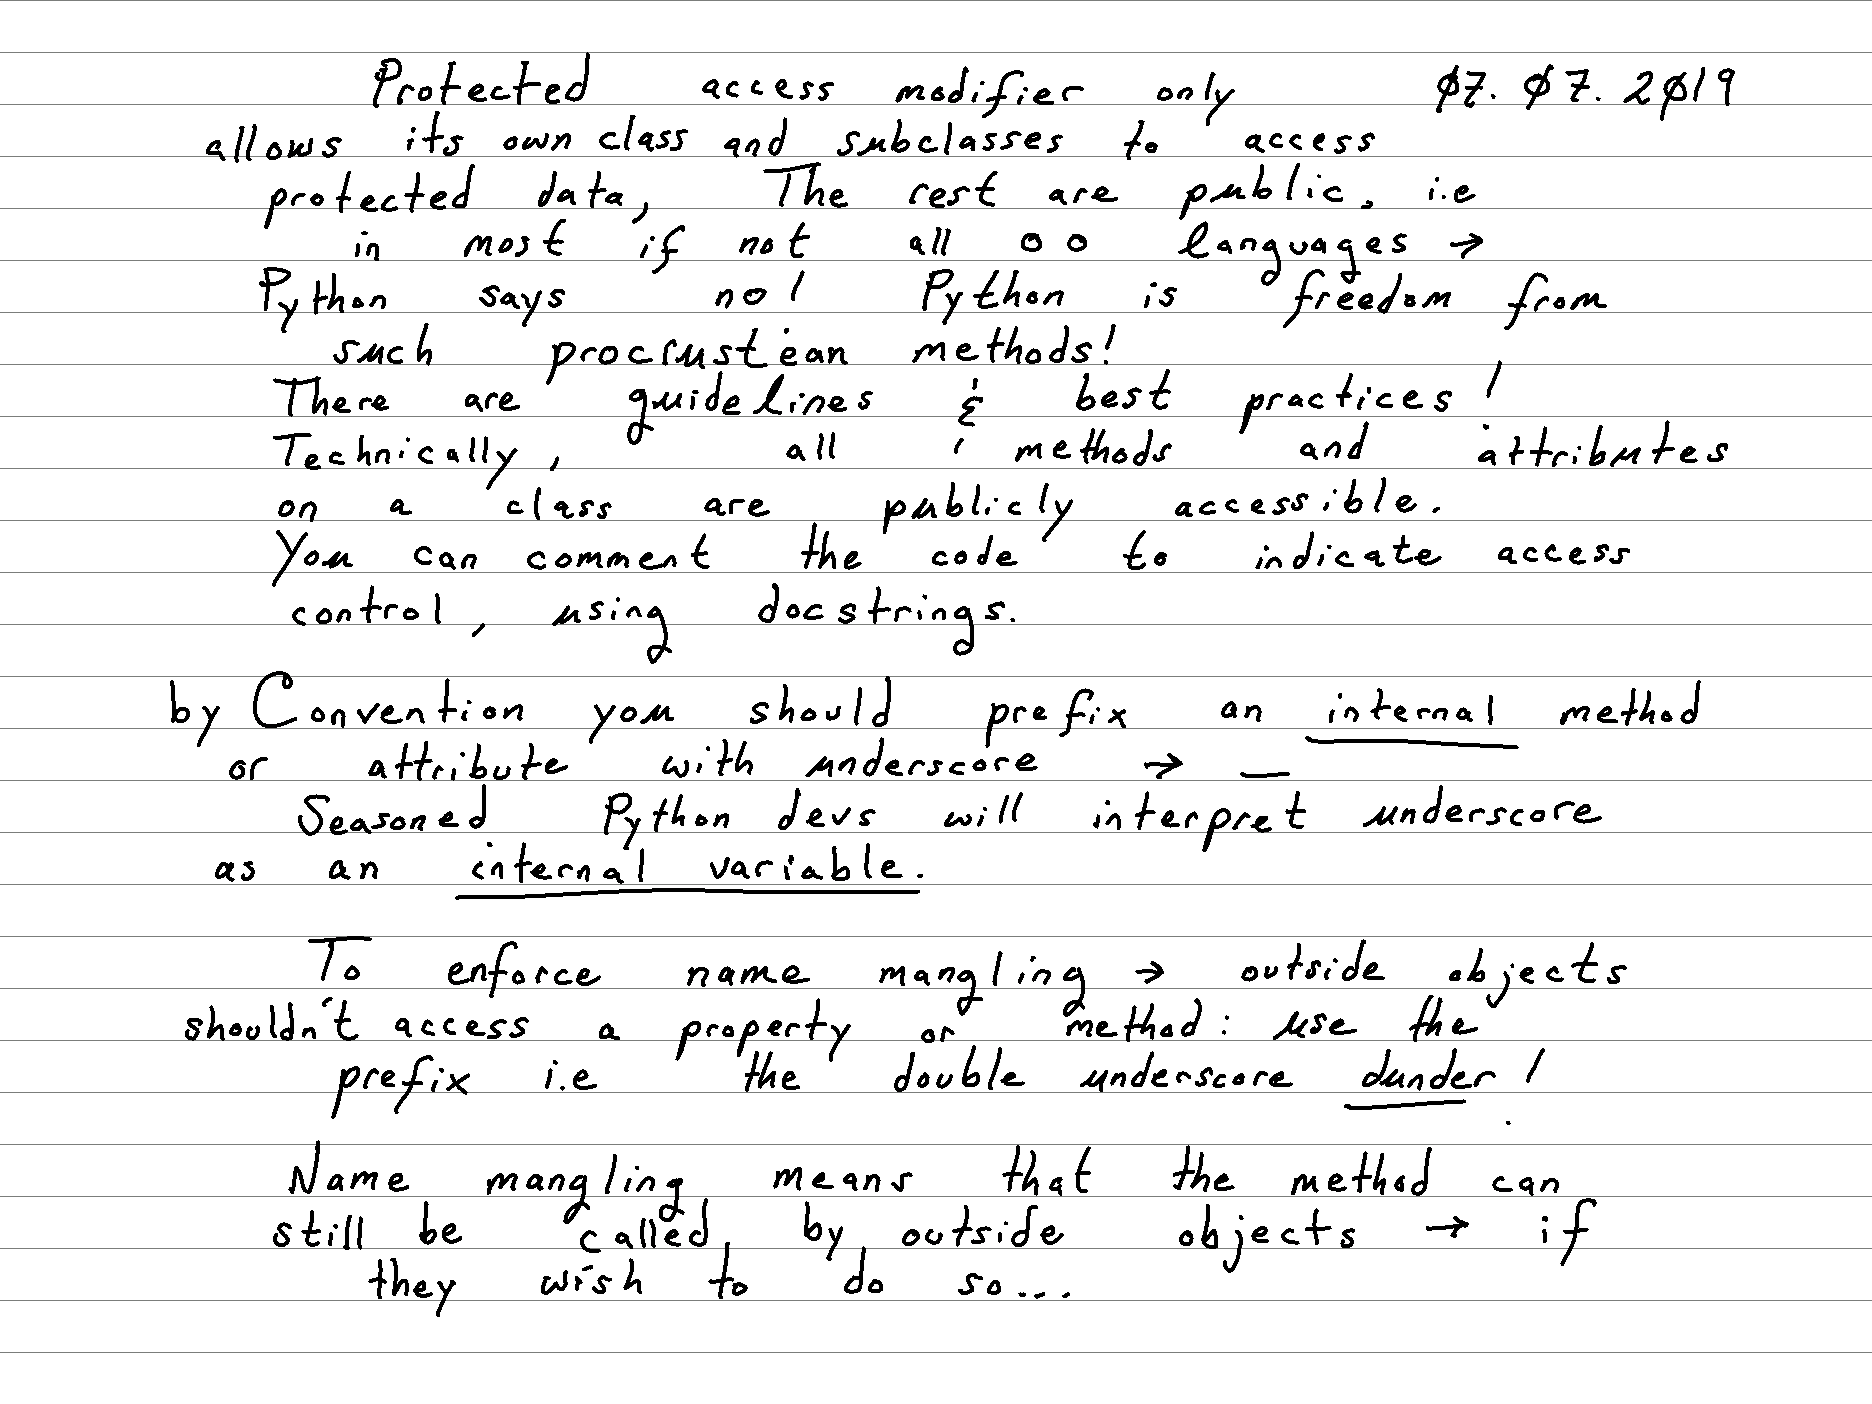 Protected access modifier only 07.07.2019
allows its own class and subclasses to access
protected data, The rest are public, i.e
in most if not all OO languages →
Python says no! Python is freedom from
such procrustean methods!
There are guidelines & best practices!
Technically, all methods and attributes
on a class are publicly accessible.
You can comment the code to indicate access
control, using docstrings.
by Convention you should prefix an internal method
or attribute with underscore → _
Seasoned Python devs will interpret underscore
as an internal variable.
To enforce name mangling → outside objects
shouldn't access a property or method: use the
prefix i.e the double underscore dunder!
Name mangling means that the method can
still be called by outside objects → if
they wish to do so...